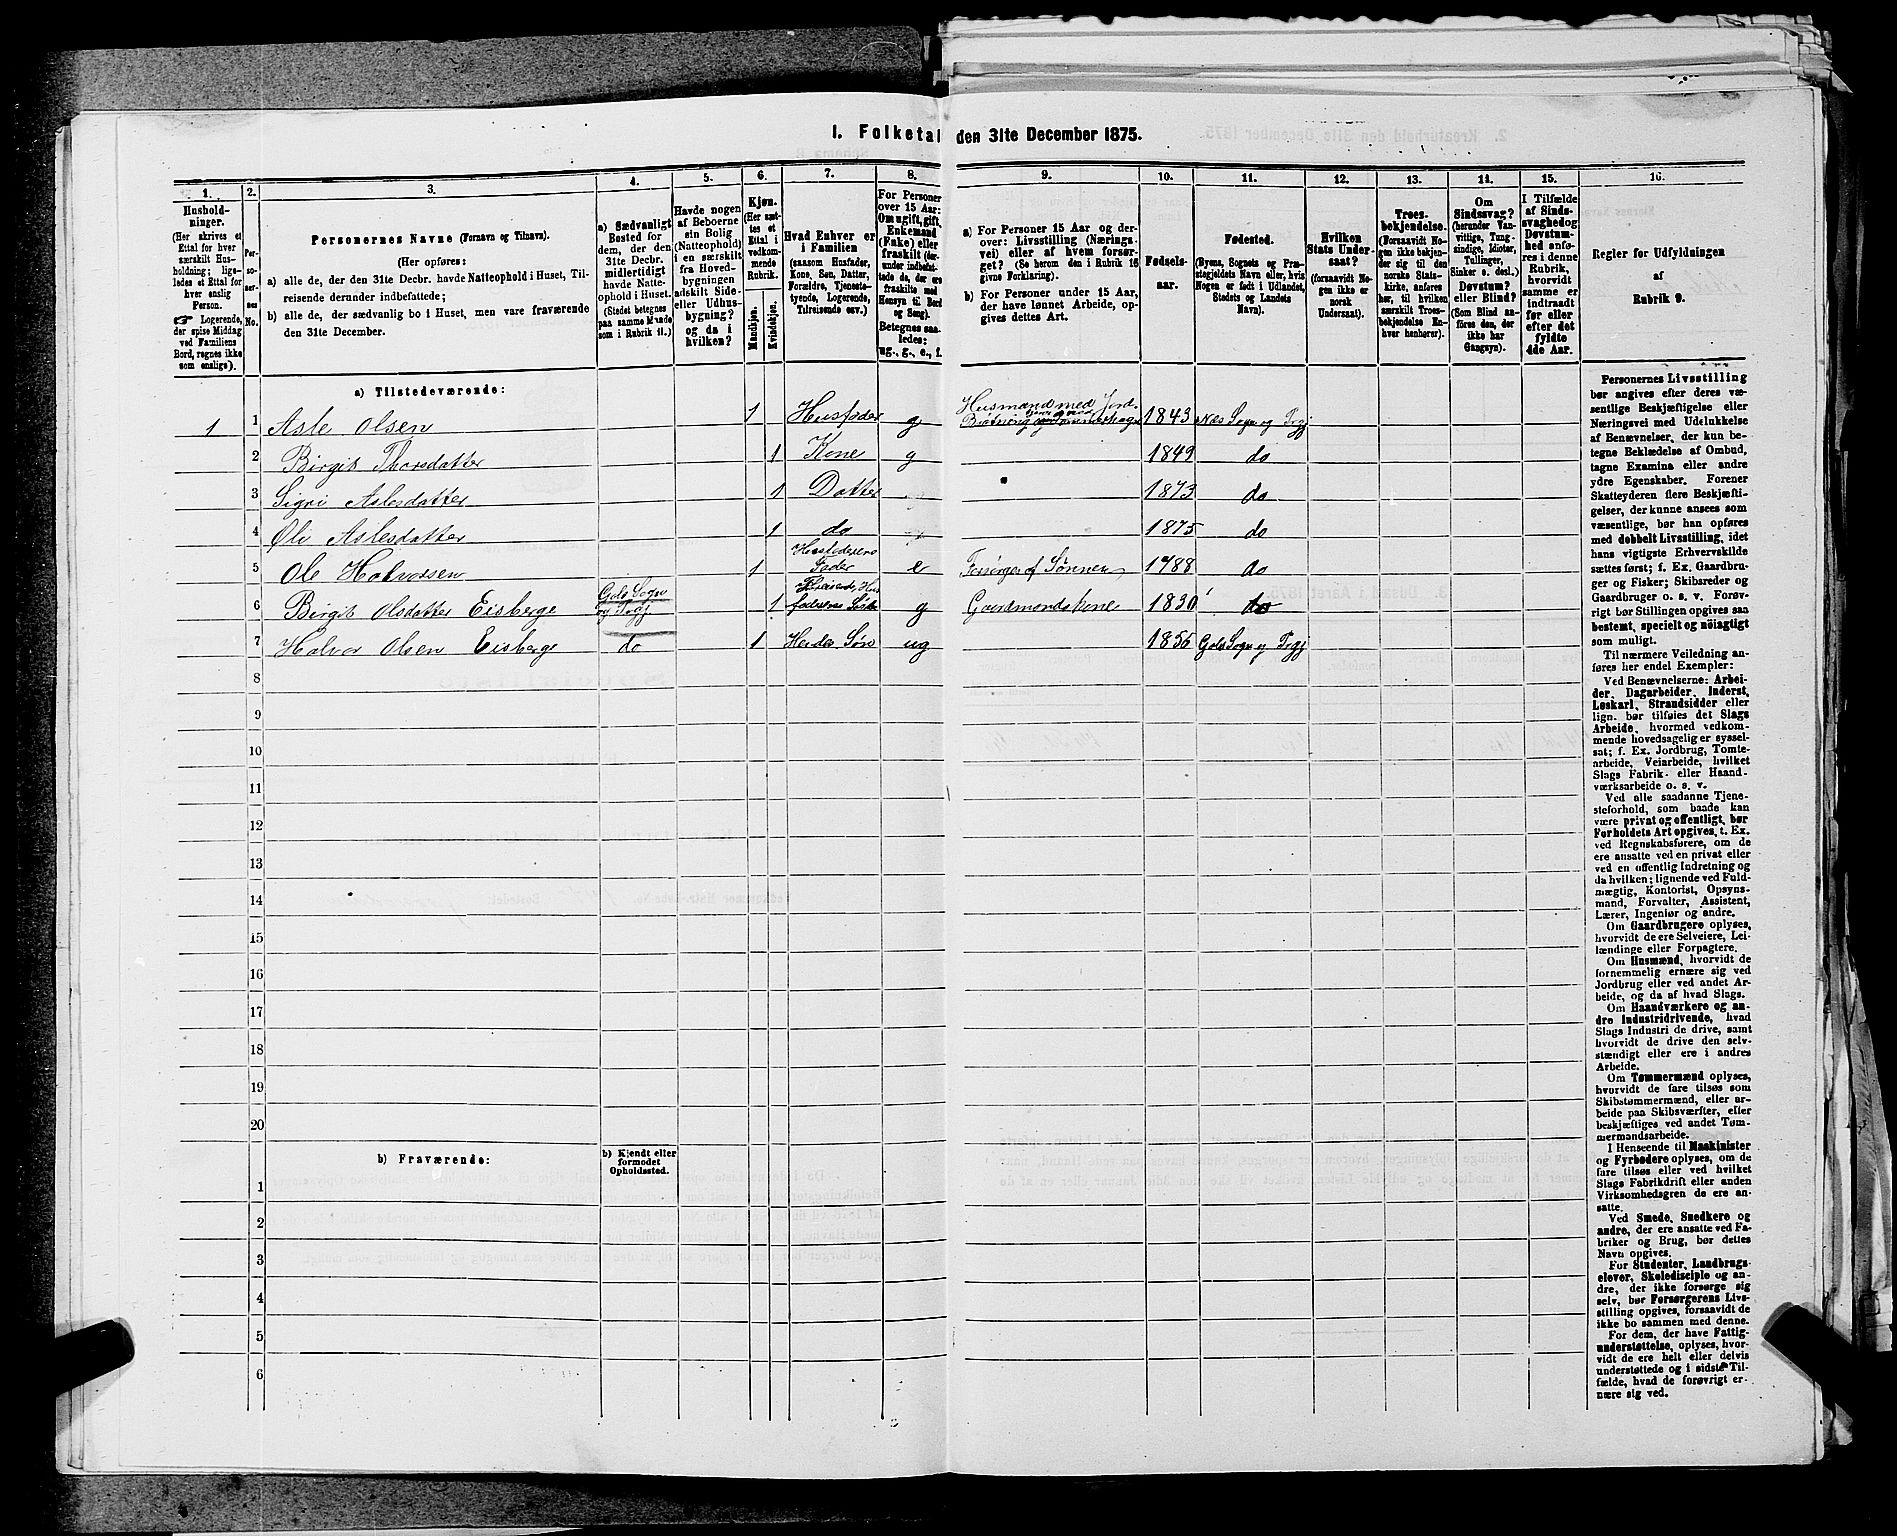 I. Folketal den 31te December 1875.
1. 2. 3. 4. 5. 6. 7. 8. 9. 10. 11. 12. 13. 14. 15. 16.
Hushold-
ninger.
(Her skrives et
Ettal for hver
særskilt Hus-
holdning; lige-
ledes et Ettal for
hver enslig
Person.
☞ Logerende,
der spise Middag
ved Familiens
Bord, regnes ikke
som enslige).
Per-
so-
ner-
nes
No.
Personernes Navne (Fornavn og Tilnavn).
(Her opføres:
a) alle de, der den 31te Decbr. havde Natteophold i Huset, Til-
reisende derunder indbefattede;
b) alle de, der sædvanlig bo i Huset, men vare fraværende
den 31te December.
a) Sædvanligt
Bosted for
dem, der den
31te Decbr.
midlertidigt
havde Natte-
ophold i Huset.
(Stedet betegnes
paa samme Maade
som i Rubrik 11.)
Havde nogen
af Beboerne
sin Bolig
(Natteophold)
i en særskilt
fra Hoved-
bygningen
adskilt Side-
eller Udhus-
bygning?
og da i
hvilken?
Kjøn.
(Her sæt-
tes et
Ettal i
vedkom-
mende
Rubrik.
Mandkjøn.
Kvindekjøn.
Hvad Enhver er
i Familien
(saasom Husfader,
Kone, Søn, Datter,
Forældre, Tjeneste-
tyende, Logerende,
Tilreisende osv.)
For Personer
over 15 Aar:
Om ugift, gift,
Enkemand
(Enke) eller
fraskilt (her-
under indbefat-
tede de, der ere
fraskilte med
Hensyn til Bord
og Seng).
Betegnes saa-
ledes:
ug., g., e., f.
a) For Personer 15 Aar og der-
over: Livsstilling (Nærings-
vei) eller af hvem forsør-
get? (Se herom den i Rubrik 16
givne Forklaring).
b) For Personer under 15 Aar,
der have lønnet Arbeide, op-
gives dettes Art.
Fødsels-
aar.
Fødested.
(Byens, Sognets og Præ-
stegjeldets Navn eller, hvis
Nogen er født i Udlandet,
Stedets og Landets
Navn).
Hvilken
Stats Under-
saat?
(forsaavidt No-
gen ikke er
norsk
Undersaat).
Troes-
bekjendelse.
(Forsaavidt No-
gen ikke bekjen-
der sig til den
norske Stats-
kirke, anføres
her, til hvilken
særskilt Troes-
bekjendelse En-
hver henhører).
Om
Sindssvag?
(herunder Van-
vittige, Tung-
sindige, Idioter,
Tullinger,
Sinker o. desl.)
Døvstum?
eller Blind?
(Som Blind an-
føres den, der
ikke har
Gangsyn).
I Tilfælde
af Sinds-
svaghed og
Døvstum-
hed anfø-
res i denne
Rubrik,
hvorvidt
samme er
indtraadt
før eller
efter det
fyldte
4de Aar.
Regler for Udfyldningen
af
Rubrik 9.
a) Tilstedeværende:
1 1 Asle Olsen 1 Husfader g Husmand med Jord 1843 Næs Sogn og Prgj
2 Birgit Thorsdatter 1 Kone g 1849 do
3 Sigri Aslesdatter 1 Datter 1873 do
4 Øli Aslesdatter 1 do 1875 do
5 Ole Halvorsen 1 Husfaderens Fader e Forsørges af Sønnen 1788 do
6 Birgit Olsdatter Eisberge Gols Sogn og Prgj 1 g Gaardmandskone 1830 do
7 Halvor Olsen Eisberge do 1 Hendes Søn ug 1856 Gols Sogn og Prgj
8
9
10
11
12
13
14
15
16
17
18
19
20
b) Fraværende:
b) Kjendt eller
formodet
Opholdssted.
1
2
3
4
5
6
Personernes Livsstilling
bør angives efter deres væ-
sentlige Beskjæftigelse eller
Næringsvei med Udelukkelse
af Benævnelser, der kun be-
tegne Beklædelse af Ombud,
tagne Examina eller andre
ydre Egenskaber. Forener
Skatteyderen flere Beskjæfti-
gelser, der kunne ansees som
væsentlige, bør han opføres
med dobbelt Livsstilling, idet
hans vigtigste Erhvervskilde
sættes først; f. Ex. Gaardbru-
ger og Fisker; Skibsreder og
Gaardbruger o. s. v. Forøv-
rigt bør Stillingen opgives saa
bestemt, specielt og nöiagtigt
som muligt.
Til nærmere Veiledning an-
føres her endel Exempler:
Ved Benævnelserne: Arbei-
der, Dagarbeider, Inderst,
Løskarl, Strandsidder eller
lign. bør tilføies det Slags
Arbeide, hvormed vedkom-
mende hovedsagelig er syssel-
sat; f. Ex. Jordbrug, Tomte-
arbeide, Veiarbeide, hvilket
Slags Fabrik- eller Haand-
værksarbeide o. s. v.
Ved alle saadanne Tjene-
steforhold, som baade kan
være privat og offentligt, bør
Forholdets Art opgives, t. Ex.
ved Regnskabsførere, om de
ere ansatte ved en privat eller
ved en offentlig Indretning og
da hvilken; lignende ved Fuld-
mægtig, Kontorist, Opsyns-
mand, Forvalter, Assistent,
Lærer, Ingeniør og andre.
Om Gaardbrugere oplyses,
hvorvidt de ere Selveiere, Lei-
lændinge eller Forpagtere.
Om Husmænd, hvorvidt de
fornemmelig ernære sig ved
Jordbrug eller ved andet Ar-
beide, og da af hvad Slags.
Om Haandværkere og an-
dre Industridrivende, hvad
Slags Industri de drive, samt
hvorvidt de drive den selv-
stændigt eller ere i andres
Arbeide.
Om Tømmermænd oplyses,
hvorvidt de fare tilsøs som
Skibstømmermænd, eller ar-
beide paa Skibsværfter, eller
beskjæftiges ved andet Tøm-
mermandsarbeide.
I Henseende til Maskinister
og Fyrbødere oplyses, om de
fare tilsøs eller ved hvilket
Slags Fabrikdrift eller anden
Virksomhedsgren de ere an-
satte.
Ved Smede, Snedkere og
andre, der ere ansatte ved Fa-
briker og Brug, bør dettes
Navn opgives.
For Studenter, Landbrugs-
elever, Skoledisciple og an-
dre, der ikke forsørge sig
selv, bør Forsørgerens Livs-
stilling opgives, forsaavidt de
ikke bo sammen med denne.
For dem, der have Fattig-
understøttelse, oplyses, hvor-
vidt de ere helt eller delvis
understøttede og i sidste Til-
fælde, hvad de forøvrigt er-
nære sig ved.